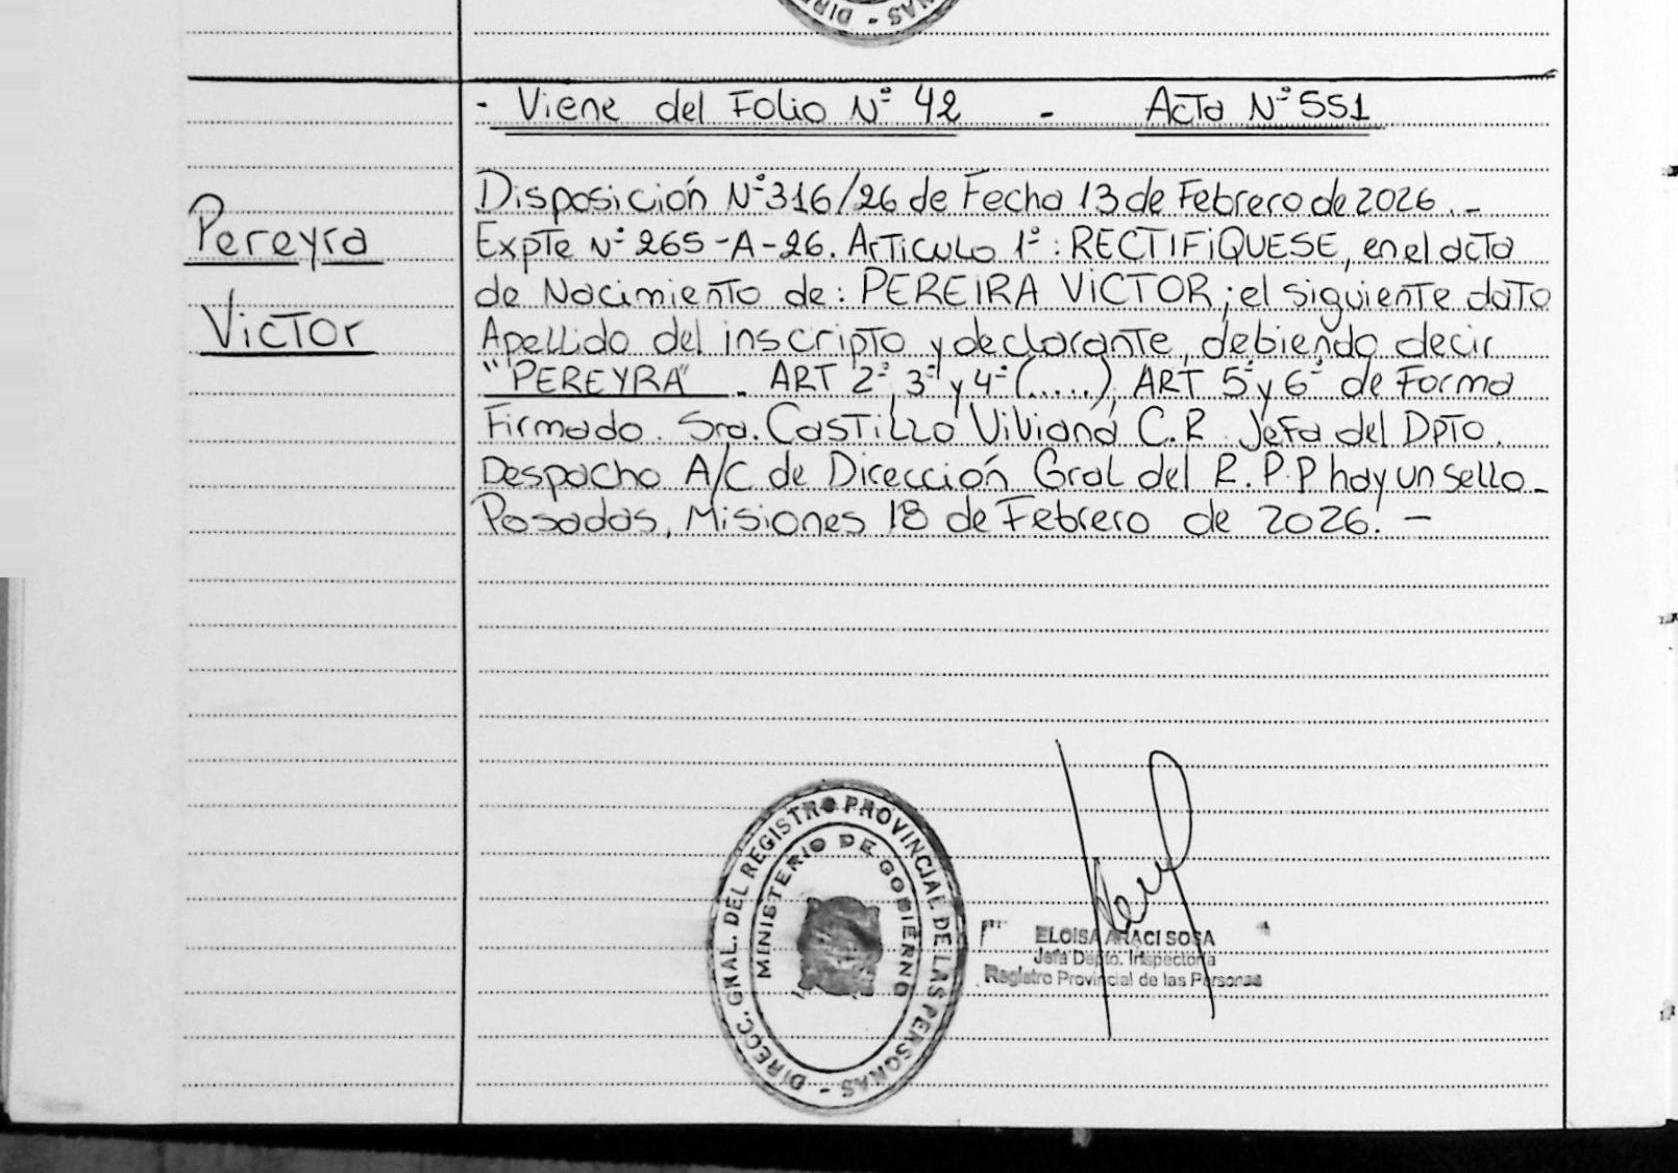 - Viene del Folio Nº 42 - Acta Nº 551
Pereyra
Victor
Disposición Nº 316/26 de Fecha 13 de Febrero de 2026.-
Expte Nº 265-A-26. Articulo 1º: RECTIFIQUESE, en el acta
de Nacimiento de: PEREIRA VICTOR; el siguiente dato
Apellido del inscripto y declarante, debiendo decir
"PEREYRA". ART 2º, 3º y 4º (.....), ART 5º y 6º de Forma
Firmado. Sra. Castillo Viviana C.R Jefa del Dpto.
Despacho A/C de Dirección Gral del R.P.P hay un sello-
Posadas, Misiones 18 de Febrero de 2026. -
DIRECC. GRAL. DEL REGISTRO PROVINCIAL DE LAS PERSONAS -
MINISTERIO DE GOBIERNO
ELOISA ARACI SOSA
Jefa Depto. Inspectoria
Registro Provincial de las Personas